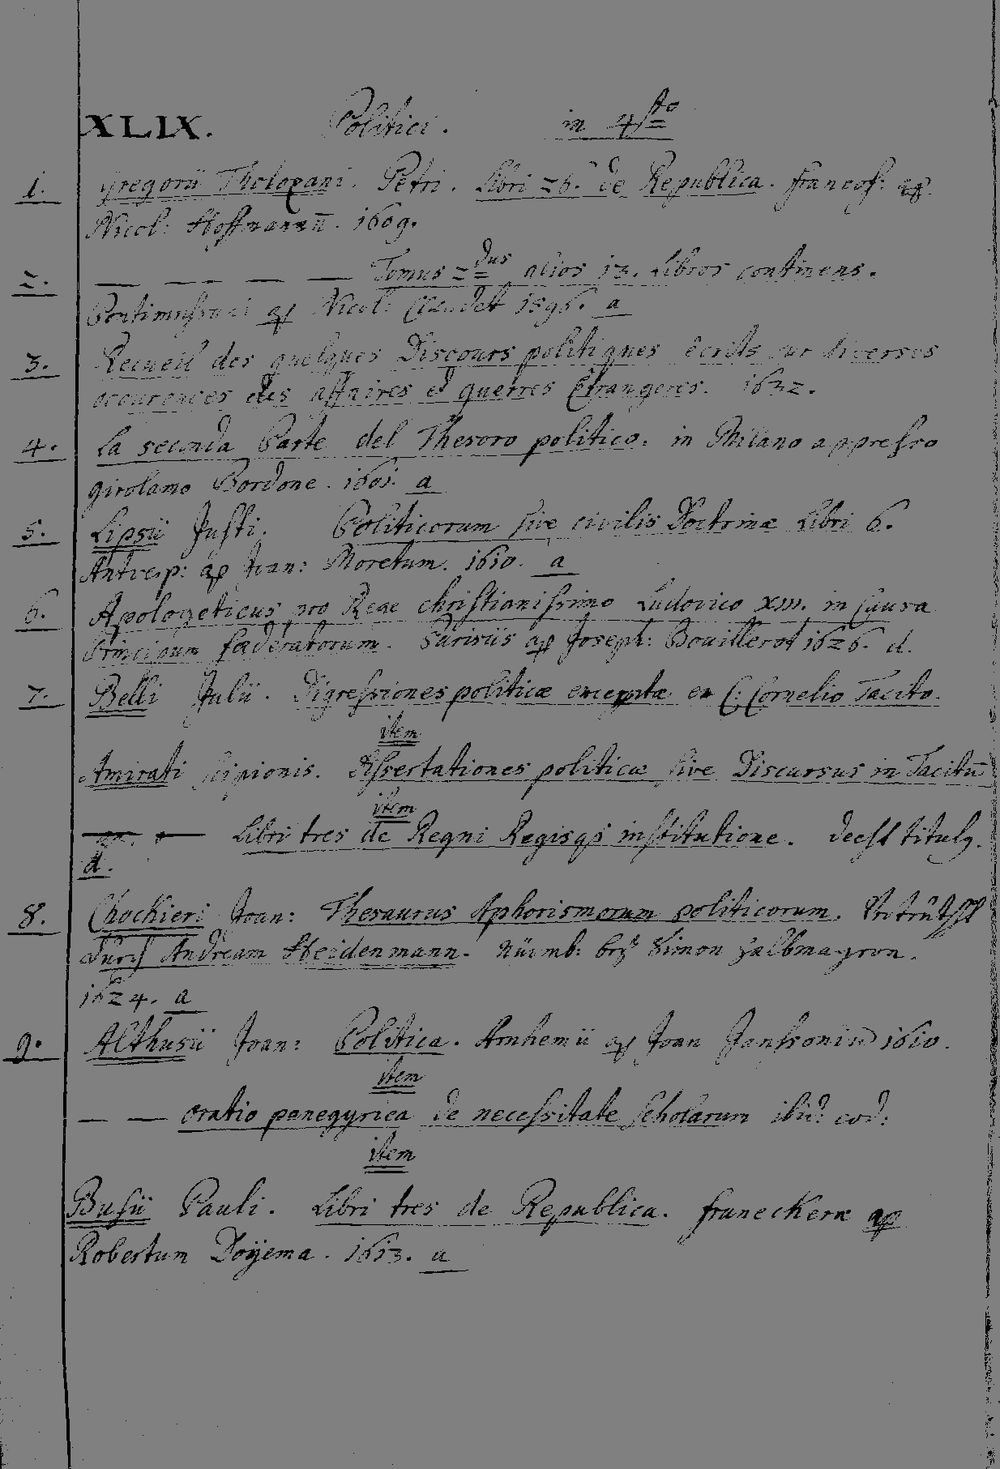 XLIX. Politici. in 4to
1. Gregorii Tholozani. Petri. Libri 26. de Republica. francof: ap.
Nicol: Hoffmannū. 1609.
2. — — — — Tomus 2dus alios 13. Libros continens.
ap Nicol: 1596. a
3. Recueil des quelques Discours politiques écrits sur diverses
occurences des affaires et guerres Etrangeres. 1632.
4. La seconda Parte del Thesoro politico. in Milano appresso
girolamo Bordone. 1601. a
5. Lipsii Justi. Politicorum sive civilis Doctrinæ Libri 6.
Antverp: ap Joan: Moretum. 1610. a
6. Apologeticus pro Rege christianissimo Ludovico XIII. in causa
Principum fæderatorum. Parisiis ap Joseph: Bouillerot 1626. d.
7. Belli Julii. Digressiones politicæ excerptæ ex C: Cornelio Tacito.
item
Amirati Scipionis. Dissertationes politicæ sive Discursus in Tacitū
item
— — Libri tres de Regni Regisq institutione. deest titulg.
d.
8. Chockieri Joan: Thesaurus Aphorismorum politicorum.
durch Andream Heidenmann. Nürmb: bey Simon Halbmayron.
1624. a
9. Althusii Joan: Politica. Arnhemii ap Joan Janssoniū 1610.
item
— — oratio panegyrica de necessitate Scholarum ibid: eod:
item
Busii Pauli. Libri tres de Republica. franeckeræ ap
Robertum Doÿema. 1613. a